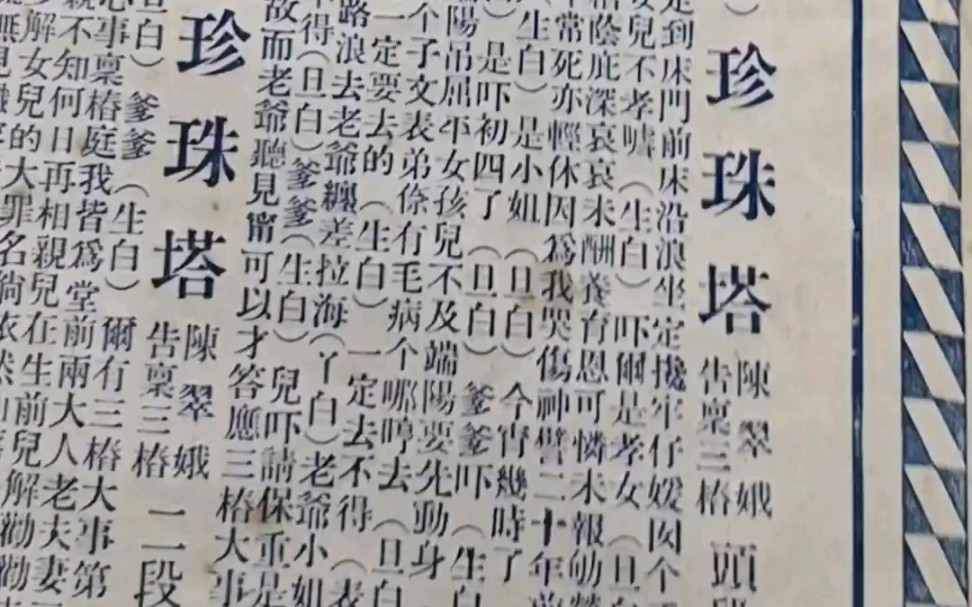 珍珠塔 陳翠娥告稟三樁 頭段
走到床門前床沿浪坐定攙牢仔媛囡个
女兒不孝嚡（生白）吓爾是孝女（旦白
陰庇深哀哀未酬養育恩可憐未報劬勞
常死亦輕休因爲我哭傷神譬二十年前
（生白）是小姐（旦白）今宵幾時了
是吓初四了（旦白）爹爹吓（生白
端陽吊屈平女孩兒不及端陽要先動身
个子文表弟倷有毛病个哪哼去（旦白
一定要去的（生白）一定去不得（表
路浪去老爺纏差拉海（丫白）老爺小姐
不得（旦白）爹爹（生白）兒吓請保重是
故而老爺聽見甯可以才答應三樁大事
珍珠塔 陳翠娥告稟三樁 二段
旦白）爹爹（生白）爾有三樁大事第
心事稟椿庭我皆爲堂前兩大人老夫妻
親不知何日再相親兒在生前兒解勸
解女兒的大罪名倘依然